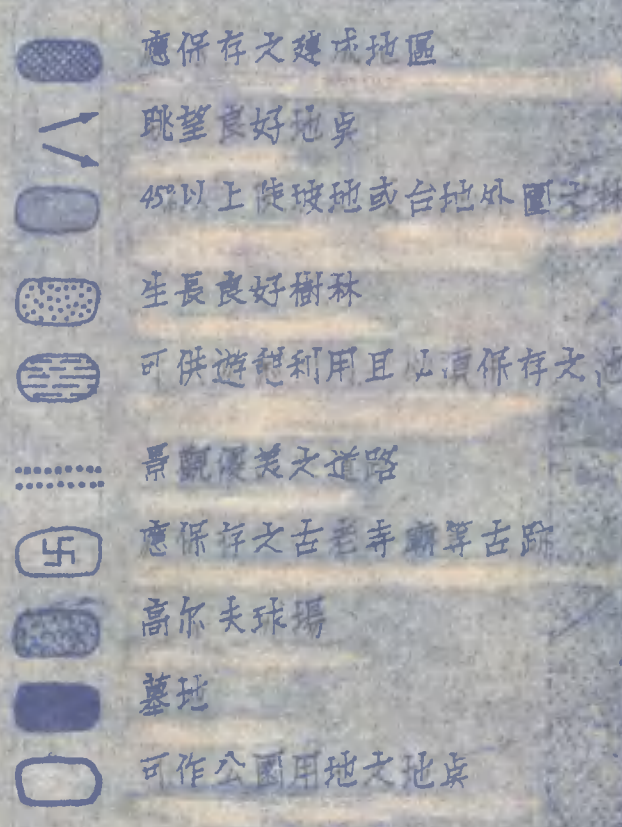 應保存之建成地區
眺望良好地点
45°以上陡坡地或台地外圍之林
生長良好樹林
可供遊憩利用且必須保存之池
景觀優美之道路
應保存之古老寺廟等古跡
高尔夫球場
墓地
可作公園用地之地点